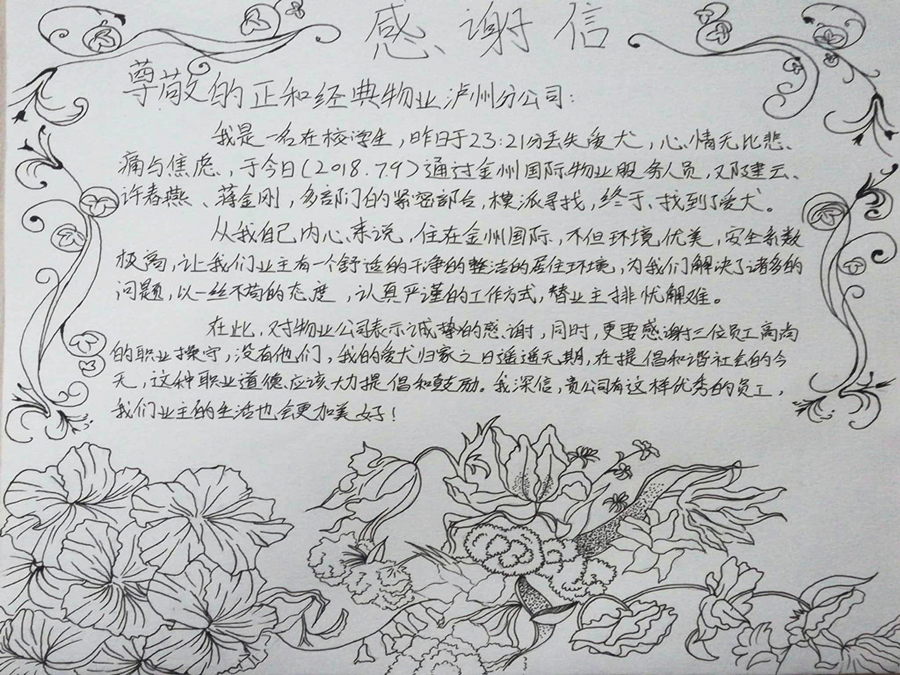 感谢信
尊敬的正和经典物业泸州分公司：
我是一名在校学生，昨日于23:21分丢失爱犬，心情无比悲
痛与焦虑，于今日(2018.7.9)通过金州国际物业服务人员，建云、
许春燕、蒋金刚，多部门的紧密部合，模派寻找，终于找到了爱犬。
从我自己内心来说，住在金州国际，不但环境优美，安全系数
极高，让我们业主有一个舒适的干净的整洁的居住环境，为我们解决了诸多的
问题，以一丝不苟的态度，认真严谨的工作方式，替业主排忧解难。
在此，对物业公司表示诚挚的感谢，同时，更要感谢三位员工高尚
的职业操守，没有他们，我的爱犬归家之日遥遥无期，在提倡和谐社会的今
天，这种职业道德应该大力提倡和鼓励。我深信，贵公司有这样优秀的员工，
我们业主的生活也会更加美好！